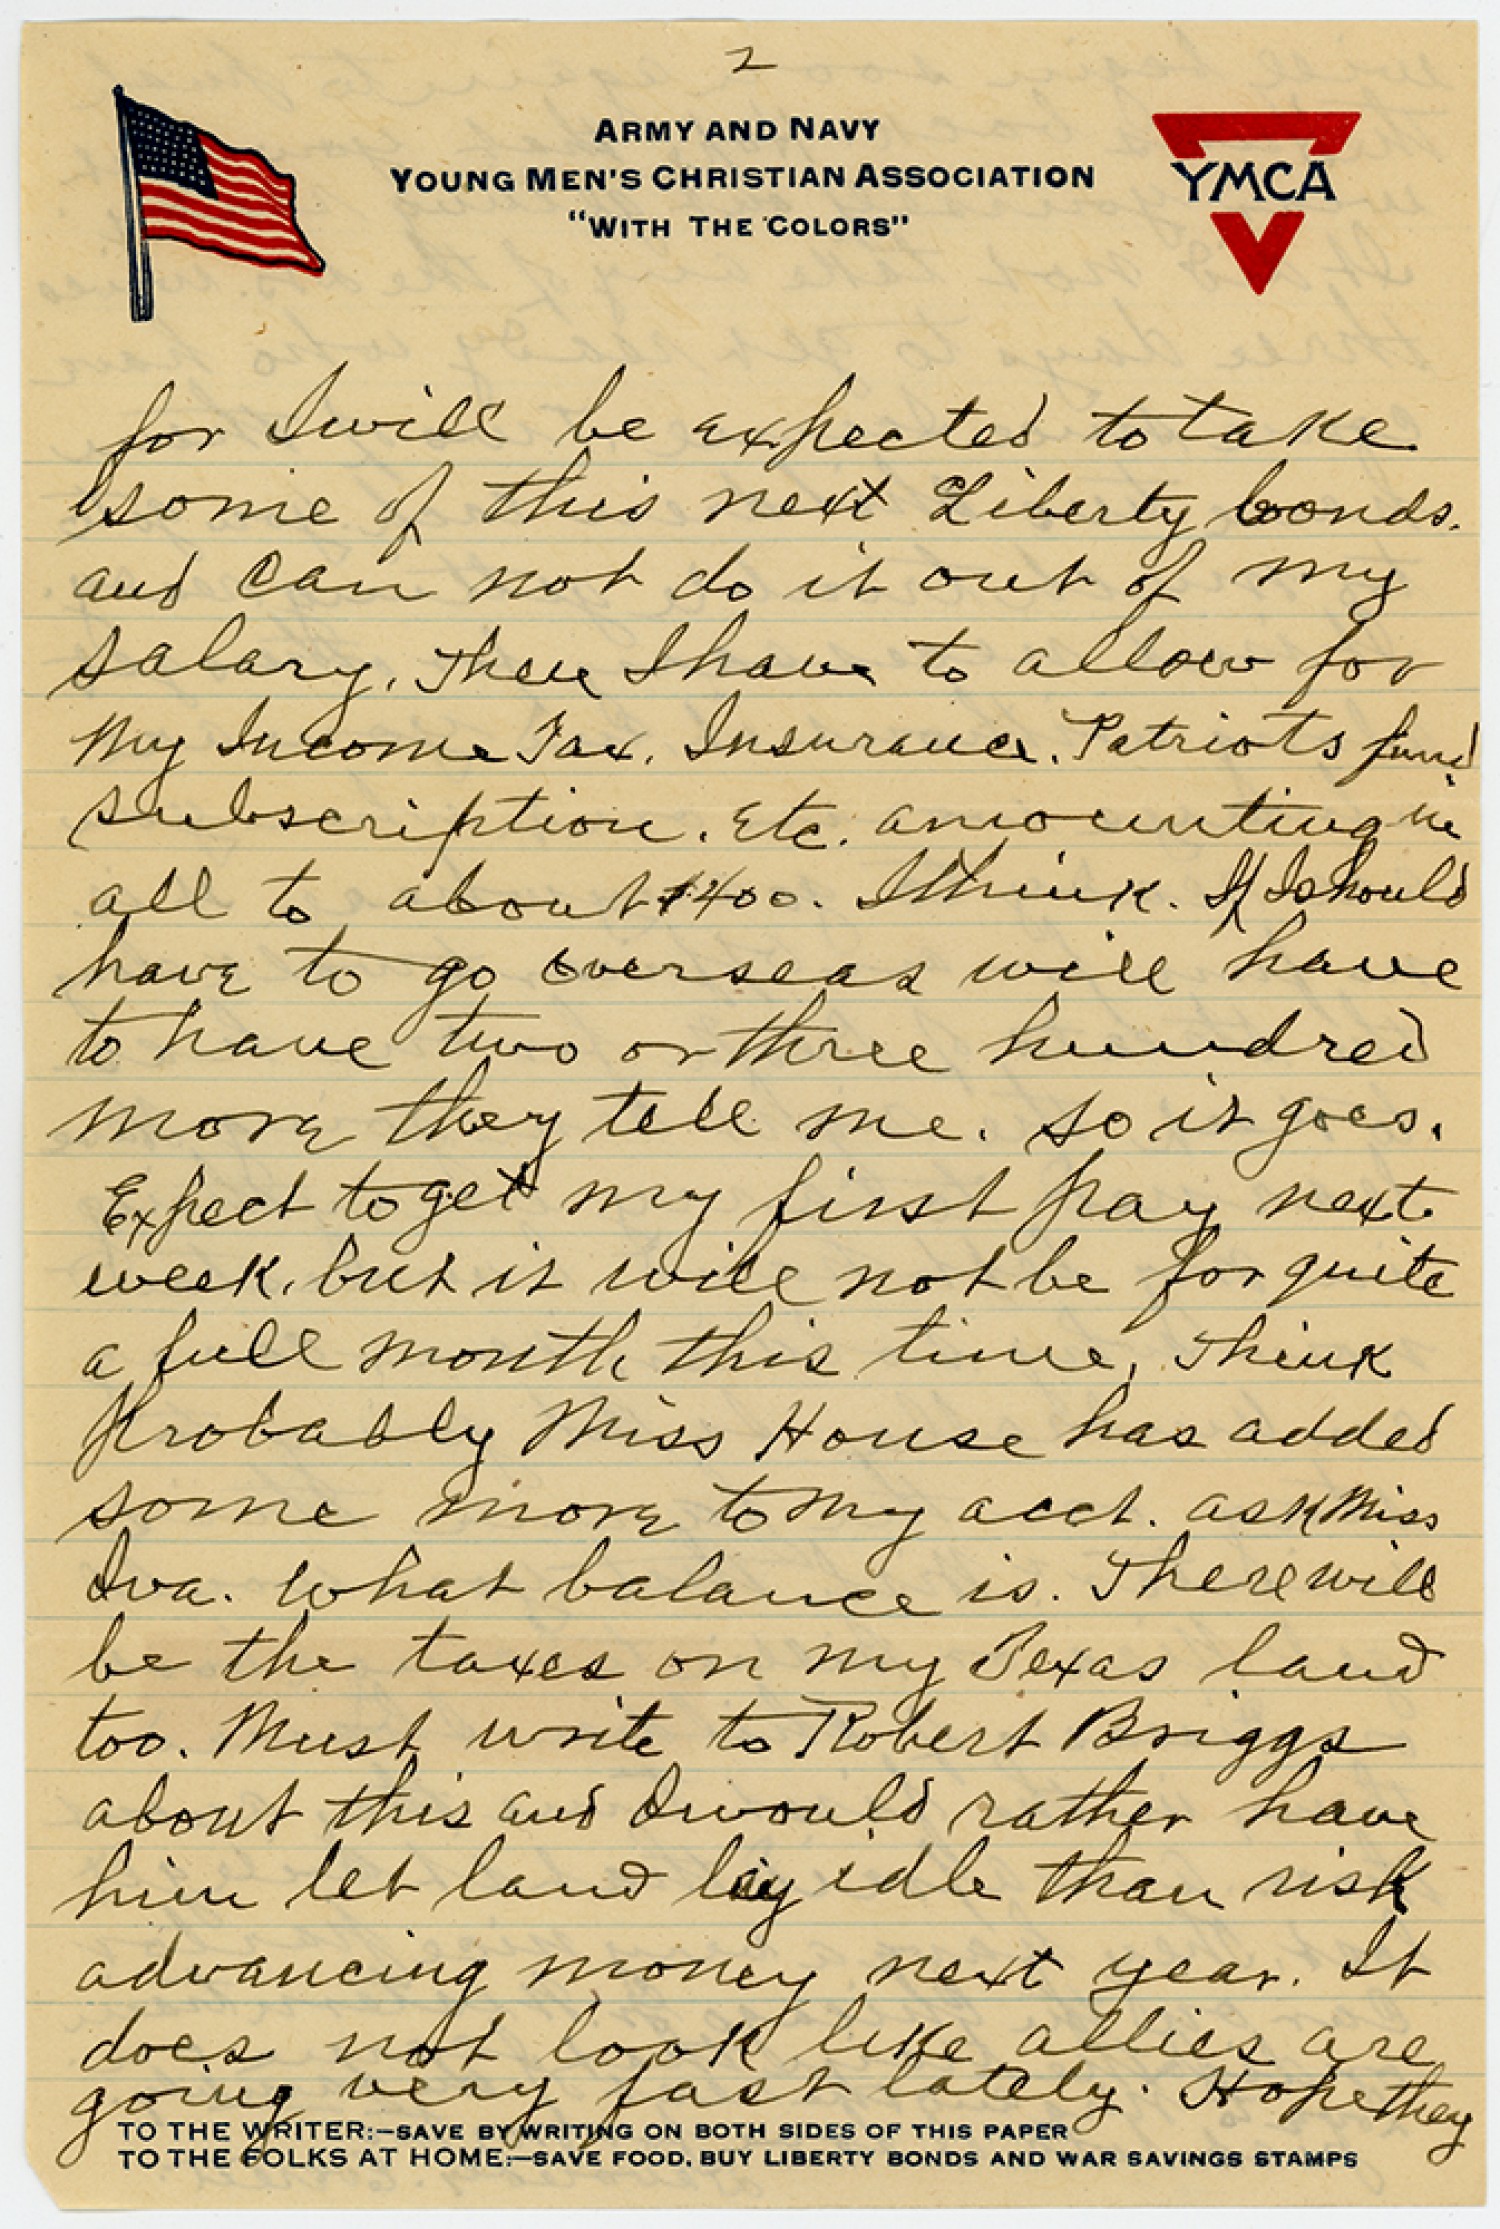 2
ARMY AND NAVY
YOUNG MEN'S CHRISTIAN ASSOCIATION
"WITH THE COLORS"
YMCA
for I will be expected to take
some of this next Liberty bonds.
and can not do it out of my
salary. Then I have to allow for
my Income Tax. Insurance. Patriots fund
subscription. etc. amounting in
all to about $400. I think. If I should
have to go overseas will have
to have two or three hundred
more they tell me. So it goes.
Expect to get my first pay next
week, but it will not be for quite
a full month this time. Think
Probably Miss House has added
some more to my acct. ask Miss
Iva. what balance is. There will
be the taxes on my Texas land
too. Must write to Robert Briggs
about this and I would rather have
him let land lay idle than risk
advancing money next year. It
does not look like allies are
going very fast lately. Hope they
TO THE WRITER:—SAVE BY WRITING ON BOTH SIDES OF THIS PAPER
TO THE FOLKS AT HOME:—SAVE FOOD, BUY LIBERTY BONDS AND WAR SAVINGS STAMPS